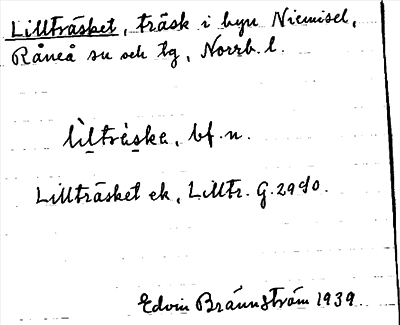 Lillträsket, träsk i byn Niemisel,
Råneå sn och tg, Norrb. l.
lìltràska, bf. n.
Lillträsket ek, Lilltr. G.
Edvin Brännström 1939